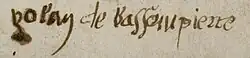 yolan de Bassompierre